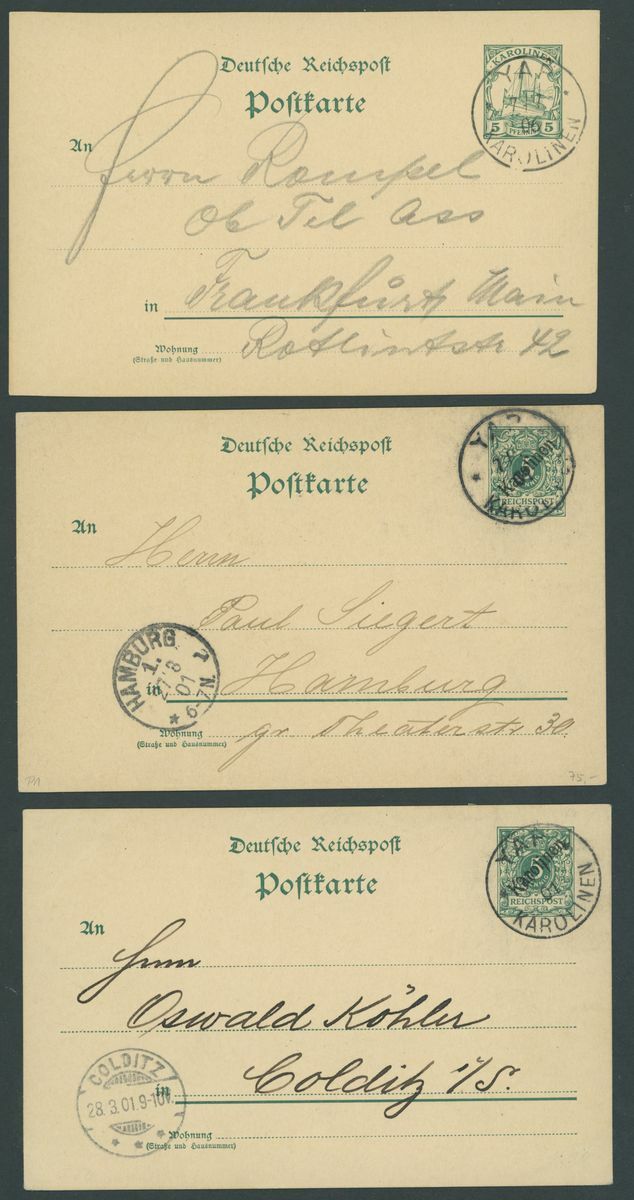 Deutsche Reichspost
Postkarte
KAROLINEN
5 PFENNIG 5
YAP
06
KAROLINEN
An Herrn Rompel
Ob Tel Ass
in Frankfurt Main
Wohnung Rotlintstr 42
(Straße und Hausnummer)
Deutsche Reichspost
Postkarte
YAP
Karolinen
REICHSPOST
An
Herrn
Paul Siegert
in Hamburg
Wohnung gr. Theaterstr 30.
(Straße und Hausnummer)
HAMBURG
1.
01
6-7N.
P1
75,-
Deutsche Reichspost
Postkarte
YAP
Karolinen
REICHSPOST
01
KAROLINEN
An
Herrn
Oswald Köhler
in Colditz i/S.
Wohnung
(Straße und Hausnummer)
COLDITZ
28.3.01.9-10V.